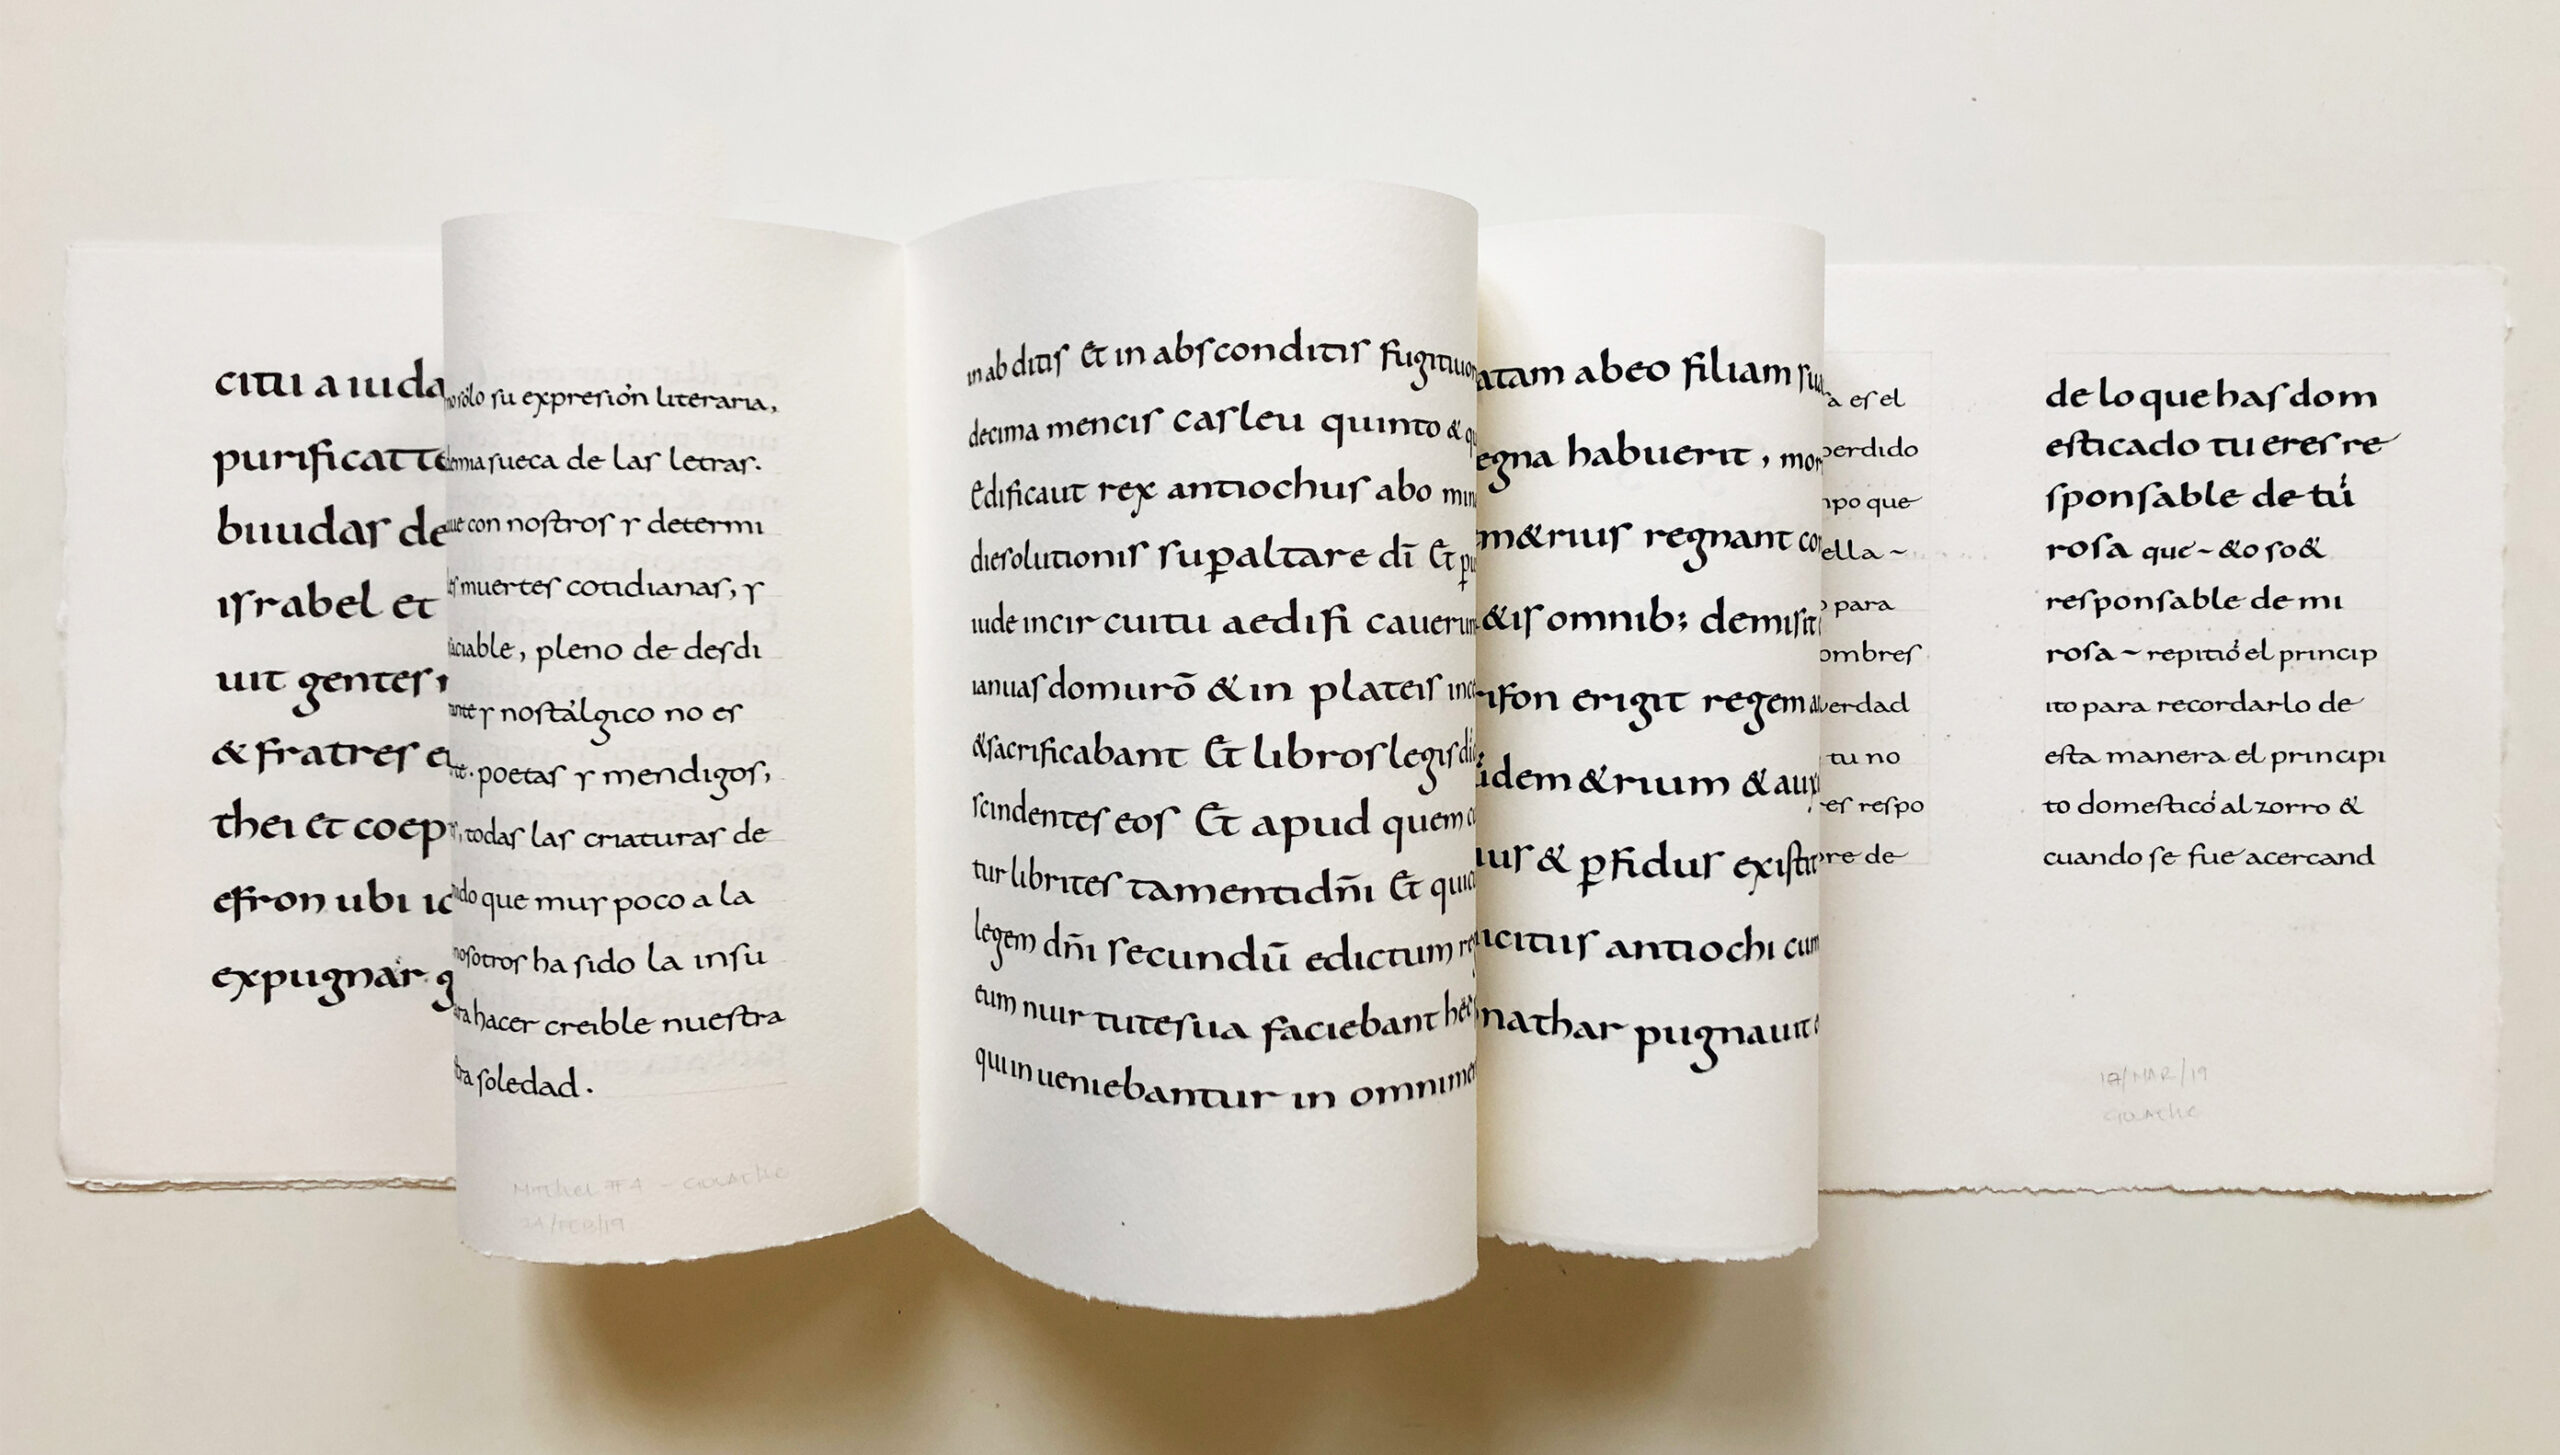 citu a iuda
purificat
biiudas de
israhel et
uit gentes
& fratres
thei et coep
efron ubi
expugnar
sólo su expresión literaria,
sueca de las letras.
con nostros y determi
muertes cotidianas, y
pleno de desdi
y nostálgico no es
poetas y mendigos,
todas las criaturas de
que muy poco a la
nosotros ha sido la insu
hacer creible nuestra
soledad.
24/FEB/19
in ab ditis Et in absconditis fugitiuor
decima mencis casleu quinto & q
Edificaut rex antiochus abo min
diesolutionis supaltare dī Et
iude incir cuitu aedifi cauerun
ianuas domurō & in plateis ince
& sacrificabant Et libros legis
scindentes eos Et apud quem
tur librites tamentidñi Et
legem dñi secundū edictum
eum nuir tutesua faciebant
quiin ueniebantur in omnime
atam abeo filiam
egna habuerit, mor
m&rius regnant co
&is omnib; demisit
rifon erigit regem
idem &rium & aux
uus & pfidus existit
icitiis antiochi cum
nathar pugnauit
a es el
perdido
mpo que
ella ~
para
ombres
verdad
tu no
es respo
re de
de lo que has dom
esticado tu eres re
sponsable de tú
rosa que ~ &o so&
responsable de mi
rosa ~ repitió el princip
ito para recordarlo de
esta manera el principi
to domesticó al zorro &
cuando se fue acercand
17/MAR/19
GOUACHE